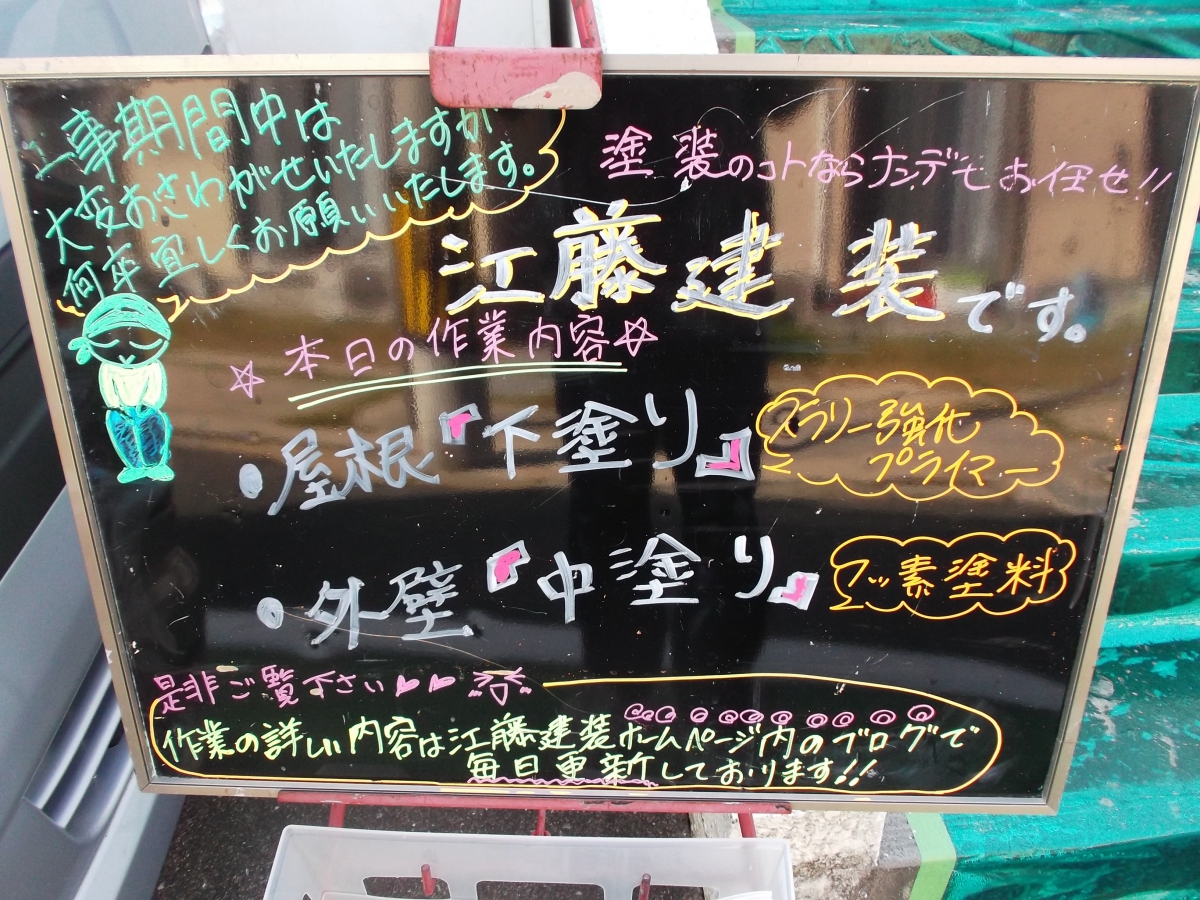 工事期間中は
大変おさわがせいたしますが
何卒宜しくお願いいたします。
塗装のコトならナンデもお任せ!!
江藤建装です。
☆本日の作業内容☆
・屋根『下塗り』
スラリー強化
プライマー
・外壁『中塗り』
フッ素塗料
是非ご覧下さい♥♥
作業の詳しい内容は江藤建装ホームページ内のブログで
毎日更新しております!!